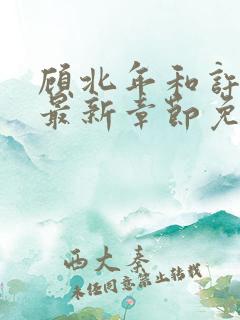 顾北年和许
最新章节免
西大秦
未经同意禁止转载